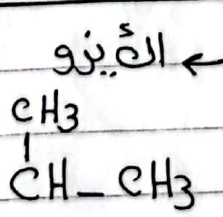 ← الأيزو
CH3
|
CH - CH3